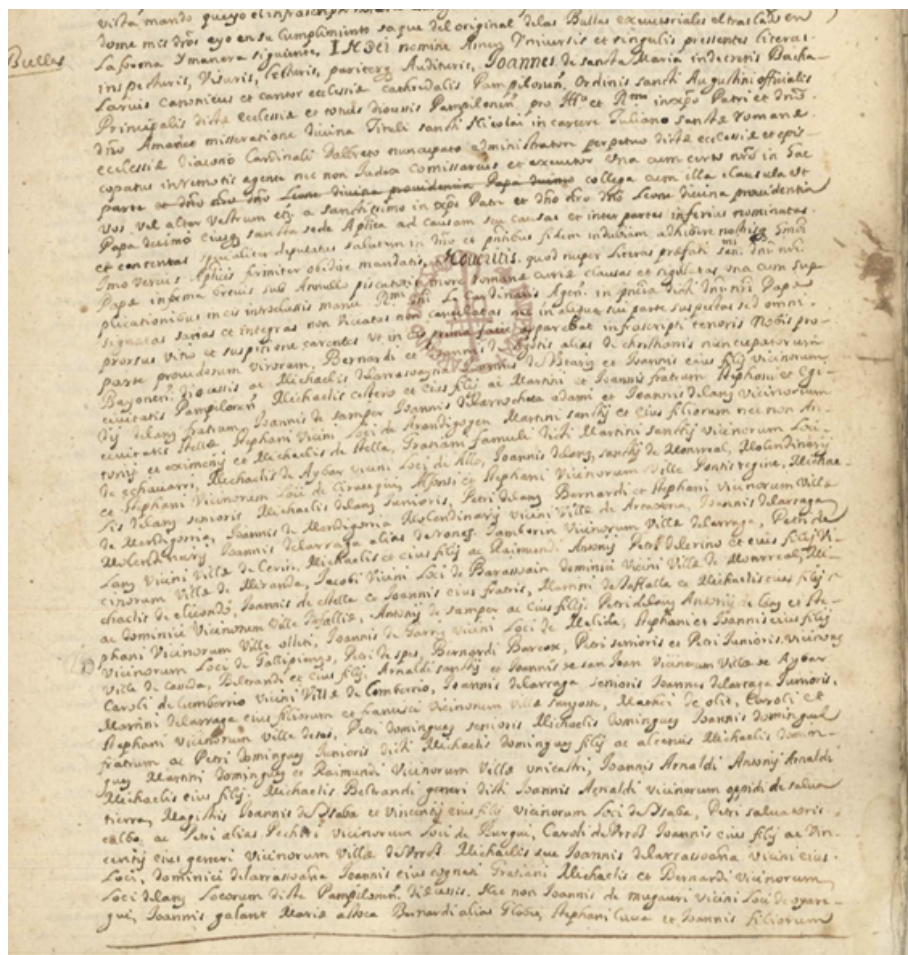 vista mando que yo el infrascripto
dome mis dros eyo en su Cumplimiento saque del original delas Bullas executoriales el traslado en
La forma Y manera siguiente. IN Dei nomine Amen Vniversis et singulis presentes literas
Bullas
inspecturis, Visuris, lecturis, pariterq Audituris, Joannes de sancta Maria in decretis Bacha-
larius Canonicus et cantor ecclesiæ cathedralis Pampilonen̄. Ordinis sancti Augustini officialis
Principalis dictæ ecclesiæ et totius diocesis Pampilonen̄ pro Illo et Rmo in xpo Patri et dn̄o
dn̄o Amaneo misseratione divina Tituli sancti Nicolai in carcere Tuliano sanctæ romanæ
ecclesiæ diacono Cardinali Dalbreto nuncupato administratore perpetuo dictæ ecclesiæ et epis-
copatus in remotis agente nec non Judex Comissarius et executor Vna cum certo nr̄o in hac
parte et dn̄o dn̄o Leone divina providentia Papa decimo collega cum illa clausula et
vos vel alter Vestrum etc. a sanctissimo in xpo Patre et dn̄o nr̄o dn̄o Leone divina providentia
Papa decimo eiusq sancta sede Aplica ad causam seu causas et inter partes inferius nominatas
et contentas specialiter deputatus salutem in dn̄o et pn̄tibus fidem indubiam adhibere nostrisq
imo verius Aplicis firmiter obedire mandatis. Noveritis. quod nuper literas præfati smi dn̄i nr̄i
Papæ in forma brevis sub Annulo piscatoris more romanæ curiæ clausas et sigillatas una cum sup-
plicationibus in eis introclusis manu Rmi dn̄i La Cardinalis Agen̄. in pn̄tia dicti dn̄i nr̄i Papæ
signatas sanas et integras non viciatas non cancellatas nec in aliqua sui parte suspectas sed omni
prorsus vitio et suspitione carentes ut in eis prima facie apparebat infrascripti tenoris Nobis pro
parte providorum virorum, Bernardi et Joannis de alias de christianis nuncupatorum
Bayonen̄. diocessis ac Michaelis delarrassoayna de Bearis et Joannis eius filij vicinorum
civitatis Pampilonen̄ Michaelis et eius filij ac Martini et Joannis fratrum Stephani et Egi-
dij delany fratrum, Joannis de samper Joannis adami et Joannis delany vicinorum
civitatis Stellæ Stephani Vicini Loci de Arandigoyen Martini santhij et eius filiorum nec non An-
tonij et eximenij et Michaelis de stella, Gratiani famuli dicti Martini santhij vicinorum Loci
de echauarri, Michaelis de Aybar vicini Loci de Allo, Joannis delany, santhij de Monreal, Molendinarij
et Stephani Vicinorum Loci de Cirauqui, Alfonsi et Stephani Vicinorum Villæ Pontis reginæ, Michae-
lis delany senioris Michaelis delany Junioris, Petri delany Bernardi et Stephani Vicinorum Villæ
de Mendigorria, Joannis de Mendigorria Molendinarij vicini Villæ de Artaxona, Joannis delarraga
Molendinarij Joannis delarraga alias Tamborin Vicinorum Villæ delarraga, Petri de
Lany Vicini Villæ de Lerin, Michaelis et eius filij ac Raimundi Antonij Petri delerino et eius filij Vi-
cinorum Villæ de Miranda, Jacobi Vicini Loci de Barassoain dominici Vicini Villæ de Monrreal, Mi-
chaelis de elicondo, Joannis de stella et Joannis eius fratris, Martini de Taffalla et Michaelis eius filij
ac dominici Vicinorum Villæ Tafallæ, Antonij de samper ac eius filij, Petri delany Antonij de Lany et Ste-
phani Vicinorum Villæ oliti, Joannis de Garry vicini Loci de Melida, Stephani et Joannis eius filij
vicinorum Loci de Fallipienzo, Petri de spes, Bernardi Barcox, Petri senioris et Petri Junioris, vicinorum
Villæ de Casida, Beltrandi et eius filij, Arnaldi santhij et Joannis de san Joan Vicinorum Villæ de Aybar
Caroli de Lumberrio vicini Villæ de Lomberrio, Joannis delarraga senioris Joannes delarraga Junioris,
Martini delarraga eius filiorum et francisci Vicinorum villæ sanguossæ, Matthei de olit, Caroli et
Stephani vicinorum Villæ desos, Petri dominguez senioris Michaelis dominguez Joannis dominguez
fratrum ac Petri dominguez Junioris dicti Michaelis dominguez filij ac alterius Michaelis domin-
guez Martini dominguez et Raimundi Vicinorum Villæ unicastri, Joannis Arnaldi Antonij Arnaldi
Michaelis eius filij. Michaelis Beltrandi generi dicti Joannis Arnaldi vicinorum oppidi de salua
tierra, Magistri Joannis de Ysaba et Vincentij eius filij vicinorum Loci de Ysaba, Petri saluatoris
calbo, ac Petri alias Pechiri vicinorum Loci de Burgui, Caroli de Vrroz Joannis eius filij ac Vin-
centij eius generi vicinorum Villæ de Vrroz Michaelis sive Joannis delarrassoaña vicini eius
Loci, dominici delarrassoaña Joannis eius cognati Gratiani Michaelis et Bernardi Vicinorum
Loci delany Locorum dictæ Pampilonen̄. diocessis. Nec non Joannis de mugauri vicini Loci de oyare-
gui, Joannis galant Mariæ attoca Bernardi alias Gloria, Stephani et Joannis filiorum